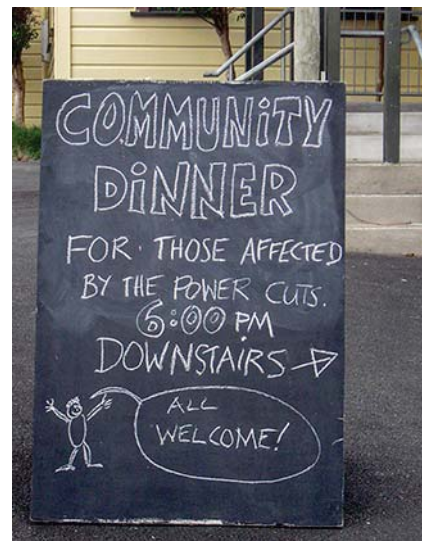 COMMUNiTY
DiNNER
FOR · THOSE AFFECTED
BY THE POWER CUTS.
6:00 PM
DOWNSTAIRS
ALL
WELCOME!